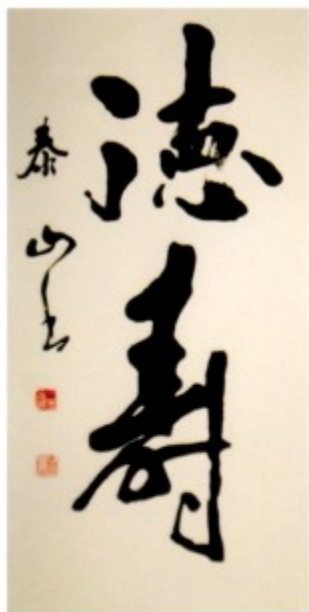 徳寿
泰山書